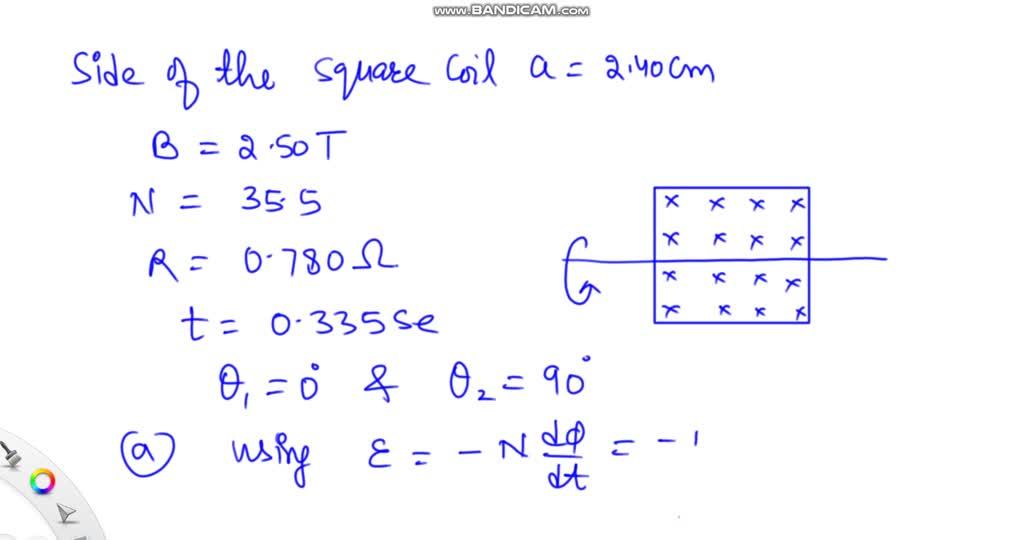 www.BANDICAM.com
Side of the square coil a = 2.40cm
B = 2.50T
N = 35.5
R = 0.780Ω
t = 0.335 Se
θ₁ = 0° & θ₂ = 90°
(a) using ε = - N dφ/dt = - 1
x x x x
x x x x
x x x x
x x x x